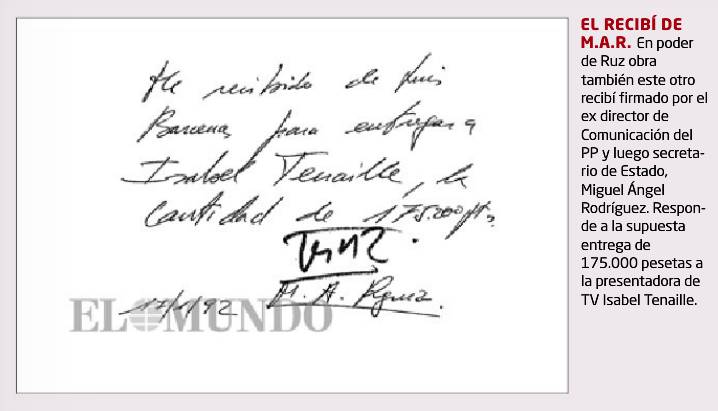 He recibido de Luis
Barcenas para entregar a
Isabel Tenaille, la
Cantidad de 175.000 pts.
17/1/92 M. A. Rguez.
EL MUNDO
EL RECIBÍ DE
M.A.R. En poder
de Ruz obra
también este otro
recibí firmado por el
ex director de
Comunicación del
PP y luego secreta-
rio de Estado,
Miguel Ángel
Rodríguez. Respon-
de a la supuesta
entrega de
175.000 pesetas a
la presentadora de
TV Isabel Tenaille.